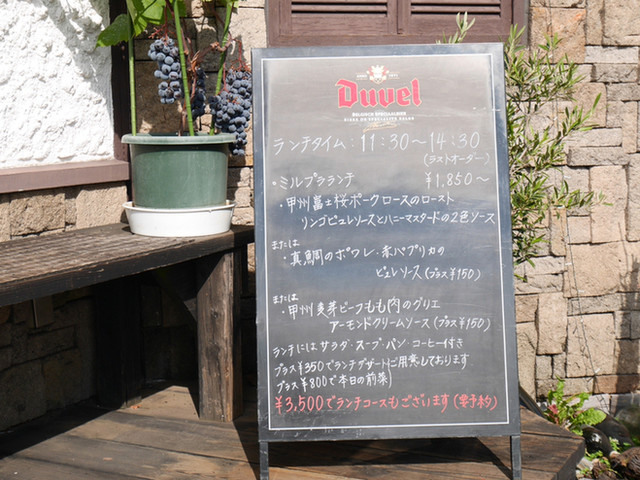 Duvel
BELGISCH SPECIAALBIER
BIERE DE SPECIALITE BELGE
ランチタイム：11:30〜14:30
(ラストオーダー)
・ミルプラランチ ¥1,850〜
・甲州富士桜ポークロースのロースト
リンゴピュレソースとハニーマスタードの2色ソース
または
・真鯛のポワレ・赤パプリカの
ピュレソース(プラス¥150)
または
・甲州麦芽ビーフもも肉のグリエ
アーモンドクリームソース(プラス¥150)
ランチにはサラダ・スープ・パン・コーヒー付き
プラス¥350でランチデザートご用意しております
プラス¥800で本日の前菜)
¥3,500でランチコースもございます(要予約)